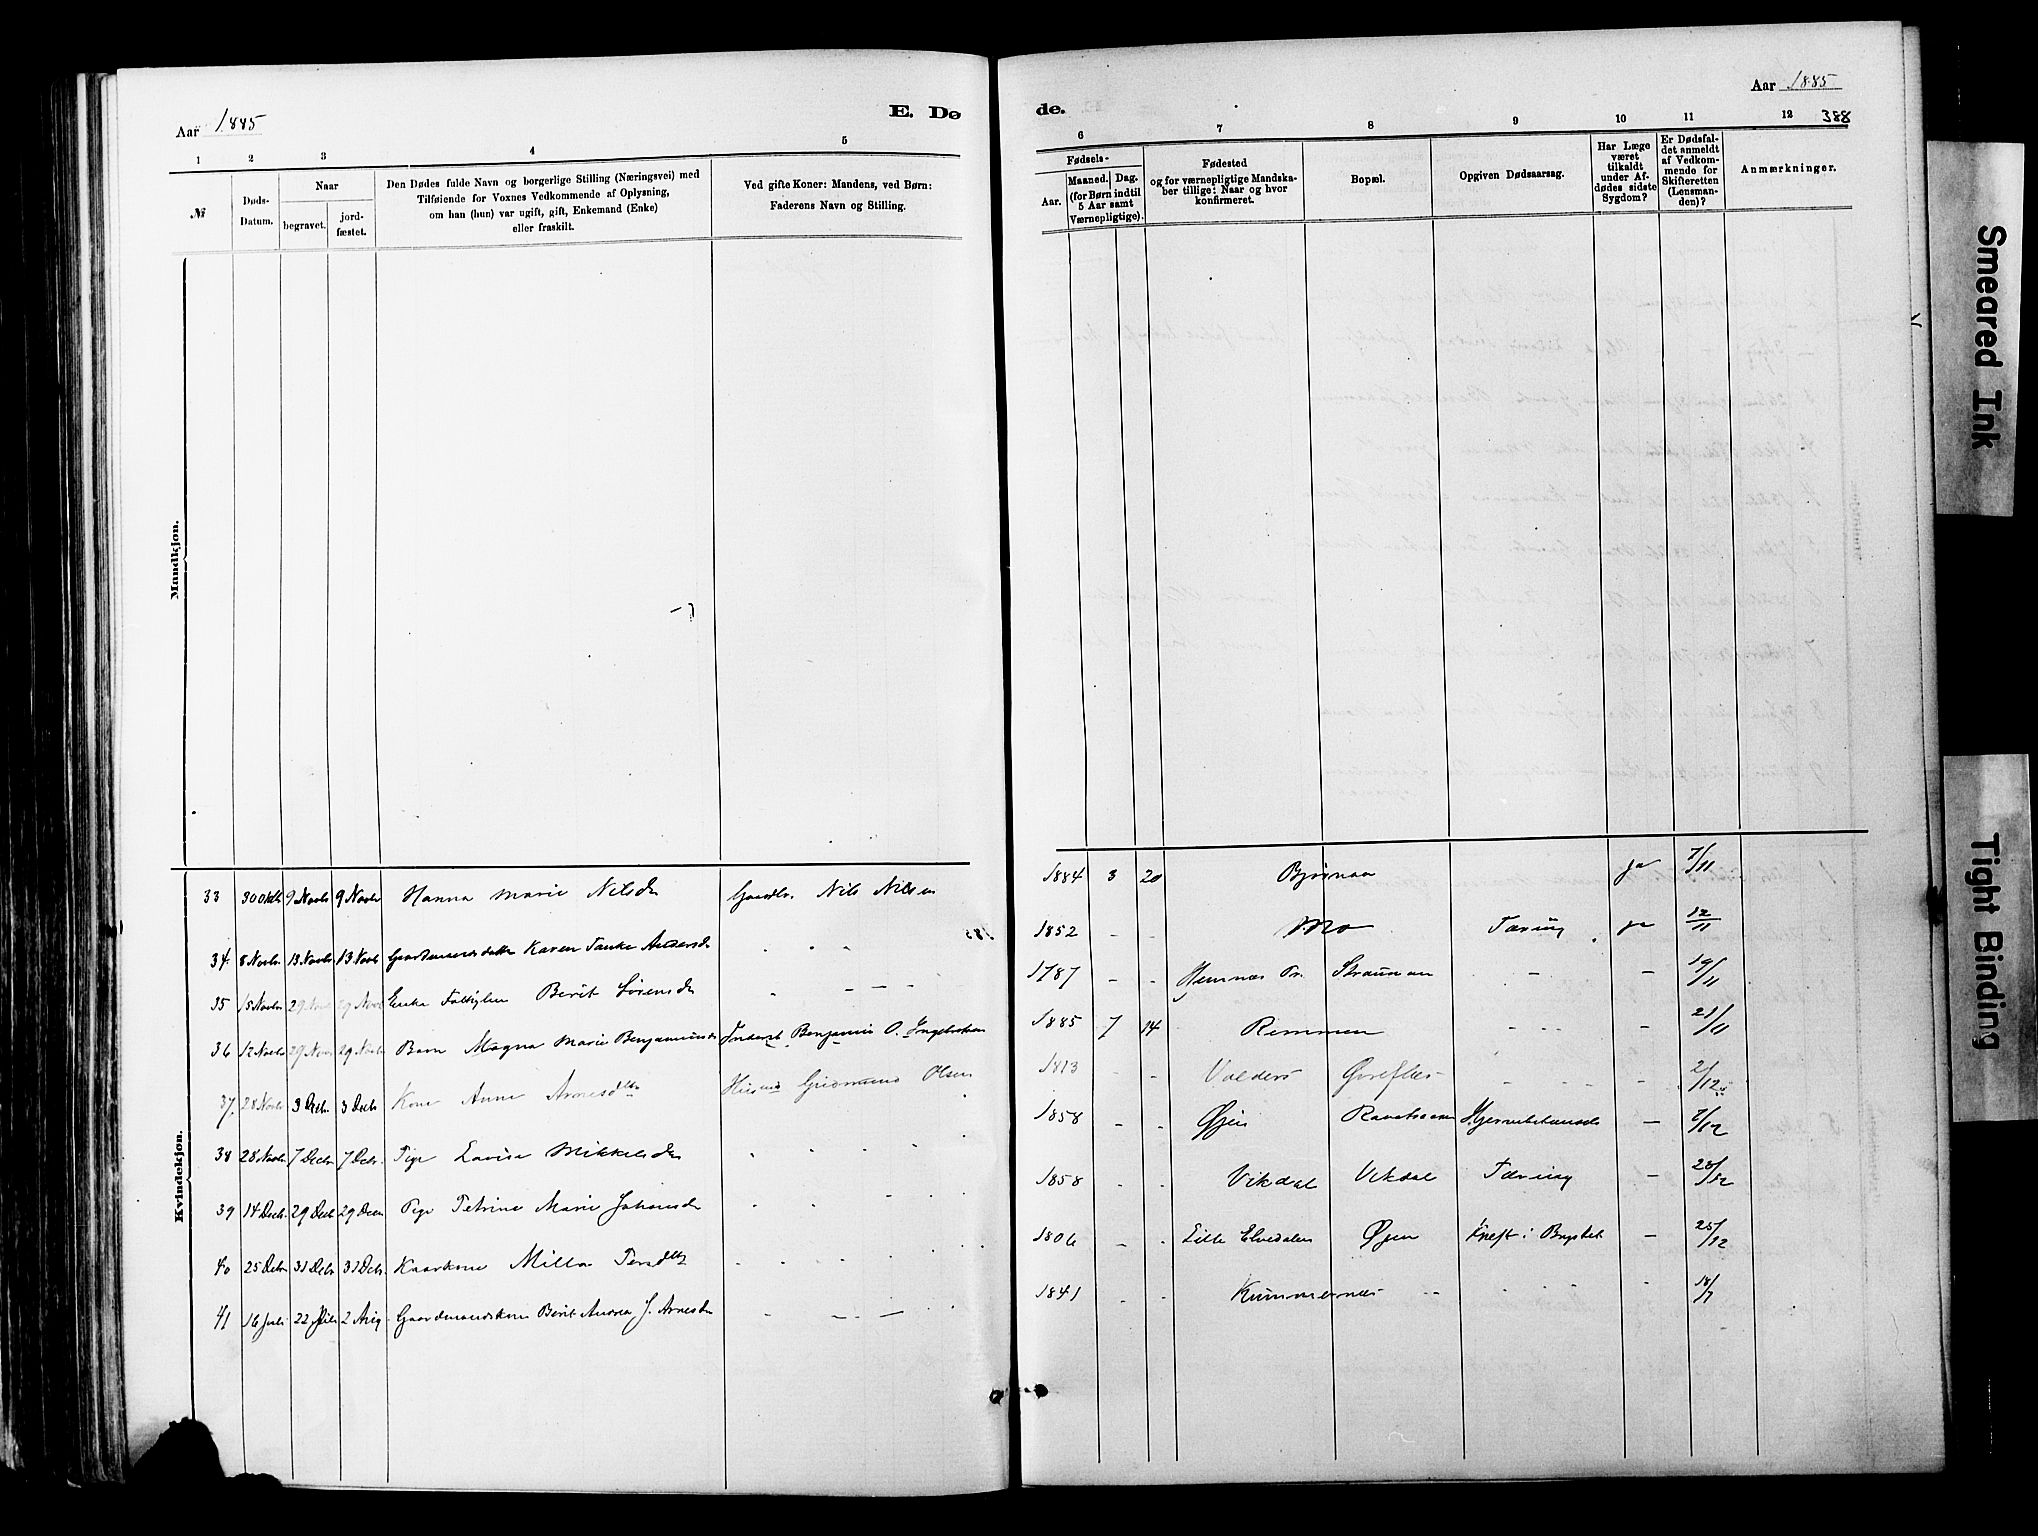 Aar 1885
E. Dø
de.
Aar 1885
388
1 2 3 4 5
6 7 8 9 10 11 12
№
Døds-Datum.
Naar
begravet.
jord-fæstet.
Den Dødes fulde Navn og borgerlige Stilling (Næringsvei) med
Tilføiende for Voxnes Vedkommende af Oplysning,
om han (hun) var ugift, gift, Enkemand (Enke)
eller fraskilt.
Ved gifte Koner: Mandens, ved Børn:
Faderens Navn og Stilling.
Fødsels-
Aar.
Maaned. Dag.
(for Børn indtil
5 Aar samt
Værnepligtige).
Fødested
og for værnepligtige Mandska-
ber tillige: Naar og hvor
konfirmeret.
Bopæl.
Opgiven Dødsaarsag.
Har Læge
været
tilkaldt
under Af-
dødes sidste
Sygdom?
Er Dødsfal-
det anmeldt
af Vedkom-
mende for
Skifteretten
(Lensman-
den)?
Anmærkninger.
Mandkjøn.
Kvindekjøn.
33 30 Oktb 9 Novbr 9 Novbr Hanna Marie Nilsdr Gaardbr. Nils Nilsen 1884 3 20 Bjørnaa ja 7/11
34. 8 Novbr 13 Novbr 13 Novb Karen Tanke Andersdr 1852 - - Mo Tæring ja 12/11
35 15 Novbr 29 Novb 29 Novb Enke Berit Sørensdr 1787 - - Hemnæs Pr. - - 19/11
36 12 Novbr 29 Novb 29 Novb Barn Magna Marie Benjaminsdr Inderst Benjamin O. Ingebrigtsen 1885 7 14 Remmen 21/11
37. 28 Novbr 3 Decbr 3 Decbr Kone Anne Arnesdtr Husmd Gudmund Olsen 1813 - - Valders Grefler 2/12
38 28 Novbr 7 Decbr 7 Decbr. Pige Lovise Mikkelsdr 1858 - - Øjen - 2/12
39 14 Decbr 29 Decb 29 Decb Pige Petrine Marie Johansdr 1858 - - Vikdal Vikdal Tæring - 28/12
40 25 Decbr 31 Decbr 31 Decbr. Milla Persdtr 1806 - - Lille Elvedalen Øjen Kreft i Brystet - 25/12
41 16 Juli 22 Juli 2 Aug Gaardmandskone Berit Andrea J. Arnesdr 1841 - - Kummernes 18/7
Smeared Ink
Tight Binding